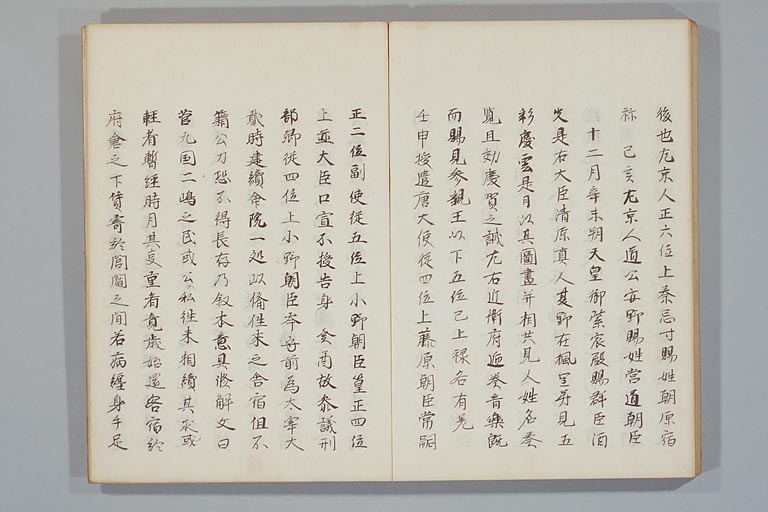 後也左京人正六位上秦忌寸賜姓朝原宿
祢己亥左京人道公安野賜姓當道朝臣
十二月辛未朔天皇御紫宸殿賜群臣酒
先是右大臣清原真人夏野在楓里第見五
彩慶雲是月以其圖畫并相共見人姓名奏
覧且効慶賀之誠左右近衛府逓奏音樂既
而賜見参親王以下五位已上禄各有差
壬申授遣唐大使従四位上藤原朝臣常嗣
正二位副使従五位上小野朝臣篁正四位
上並大臣口宣不授告身癸酉故参議刑
部卿従四位上小野朝臣岑守前為太宰大
貳時建續命院一処以備往来之舎宿但不
籍公力恐不得長存乃叙本意具修解文曰
管九国二嶋之民或公私往来相續其
輕者暫経時月其重者竟歳始還客宿於
府倉之下賃寄於閭閻之間若病纏身手足